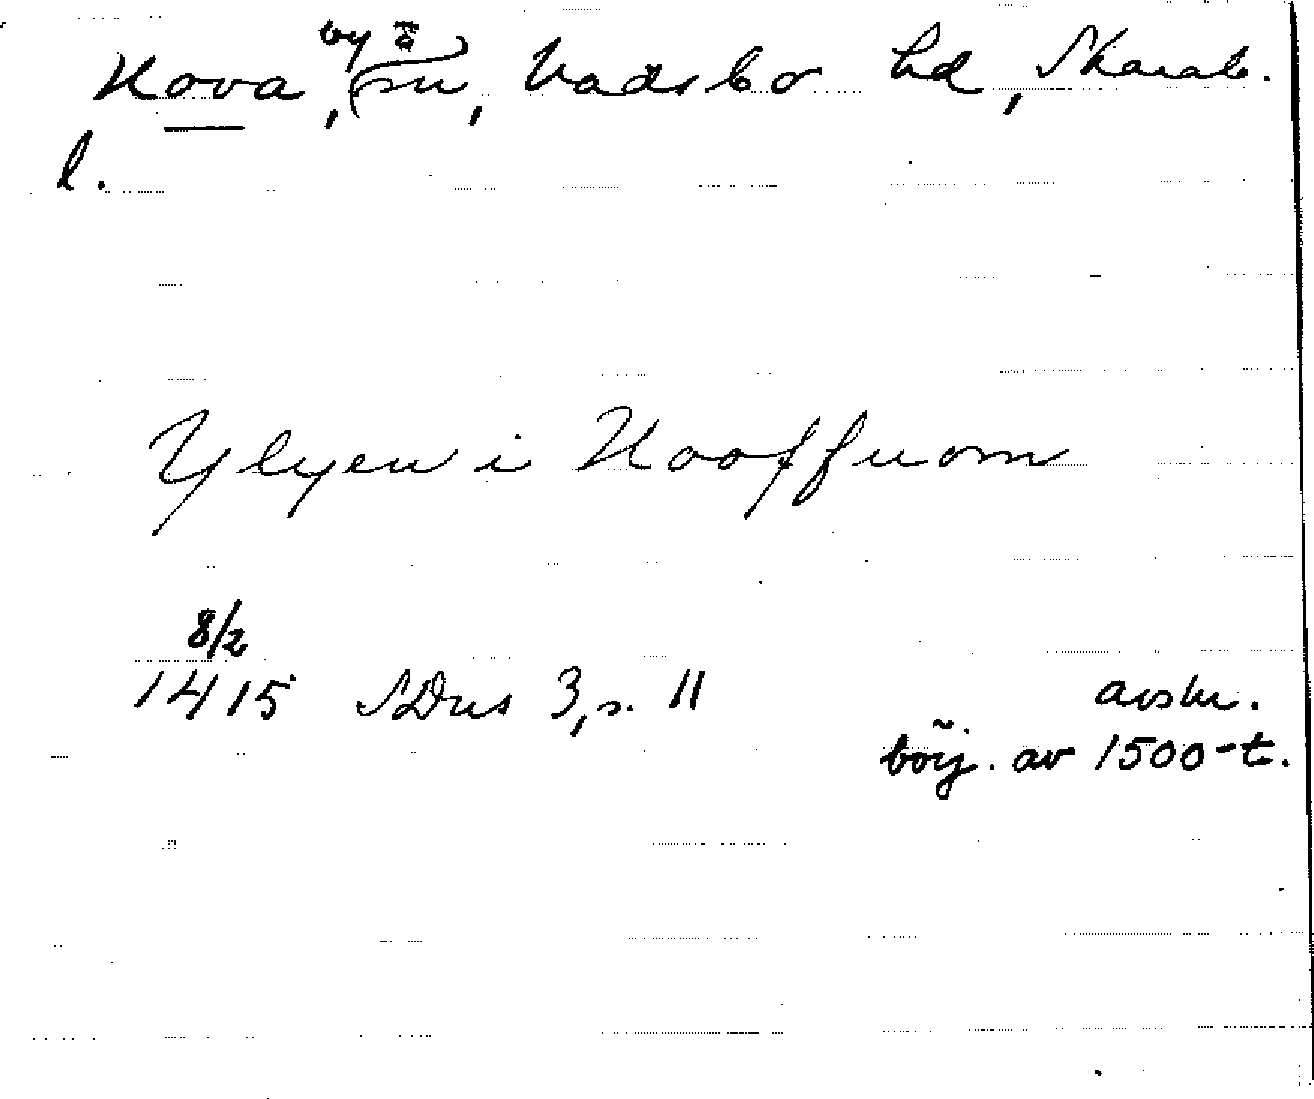 by ä
Hova, (sn, Vadsbo hd, Skarab.
l.
Ylyen i Hooffuom
8/2
1415 SDns 3, s. 11 avskr.
börj. av 1500-t.